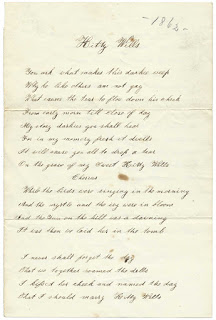 -1862-
Kitty Wells
You ask what makes this darkie weep
Why he like others am not gay
What causes the tear to flow down his cheek
From early morn till close of day
My story darkies you shall hear
For in my memory fresh it dwells
It will cause you all to drop a tear
On the grave of my sweet Kitty Wells
Chorus
While the birds were singing in the morning
And the myrtle and the ivy were in bloom
And the Sun on the hill was a dawning
It was then we laid her in the tomb
I never shall forget the day
That we together roamed the dells
I kissed her cheek and named the day
That I should marry Kitty Wells